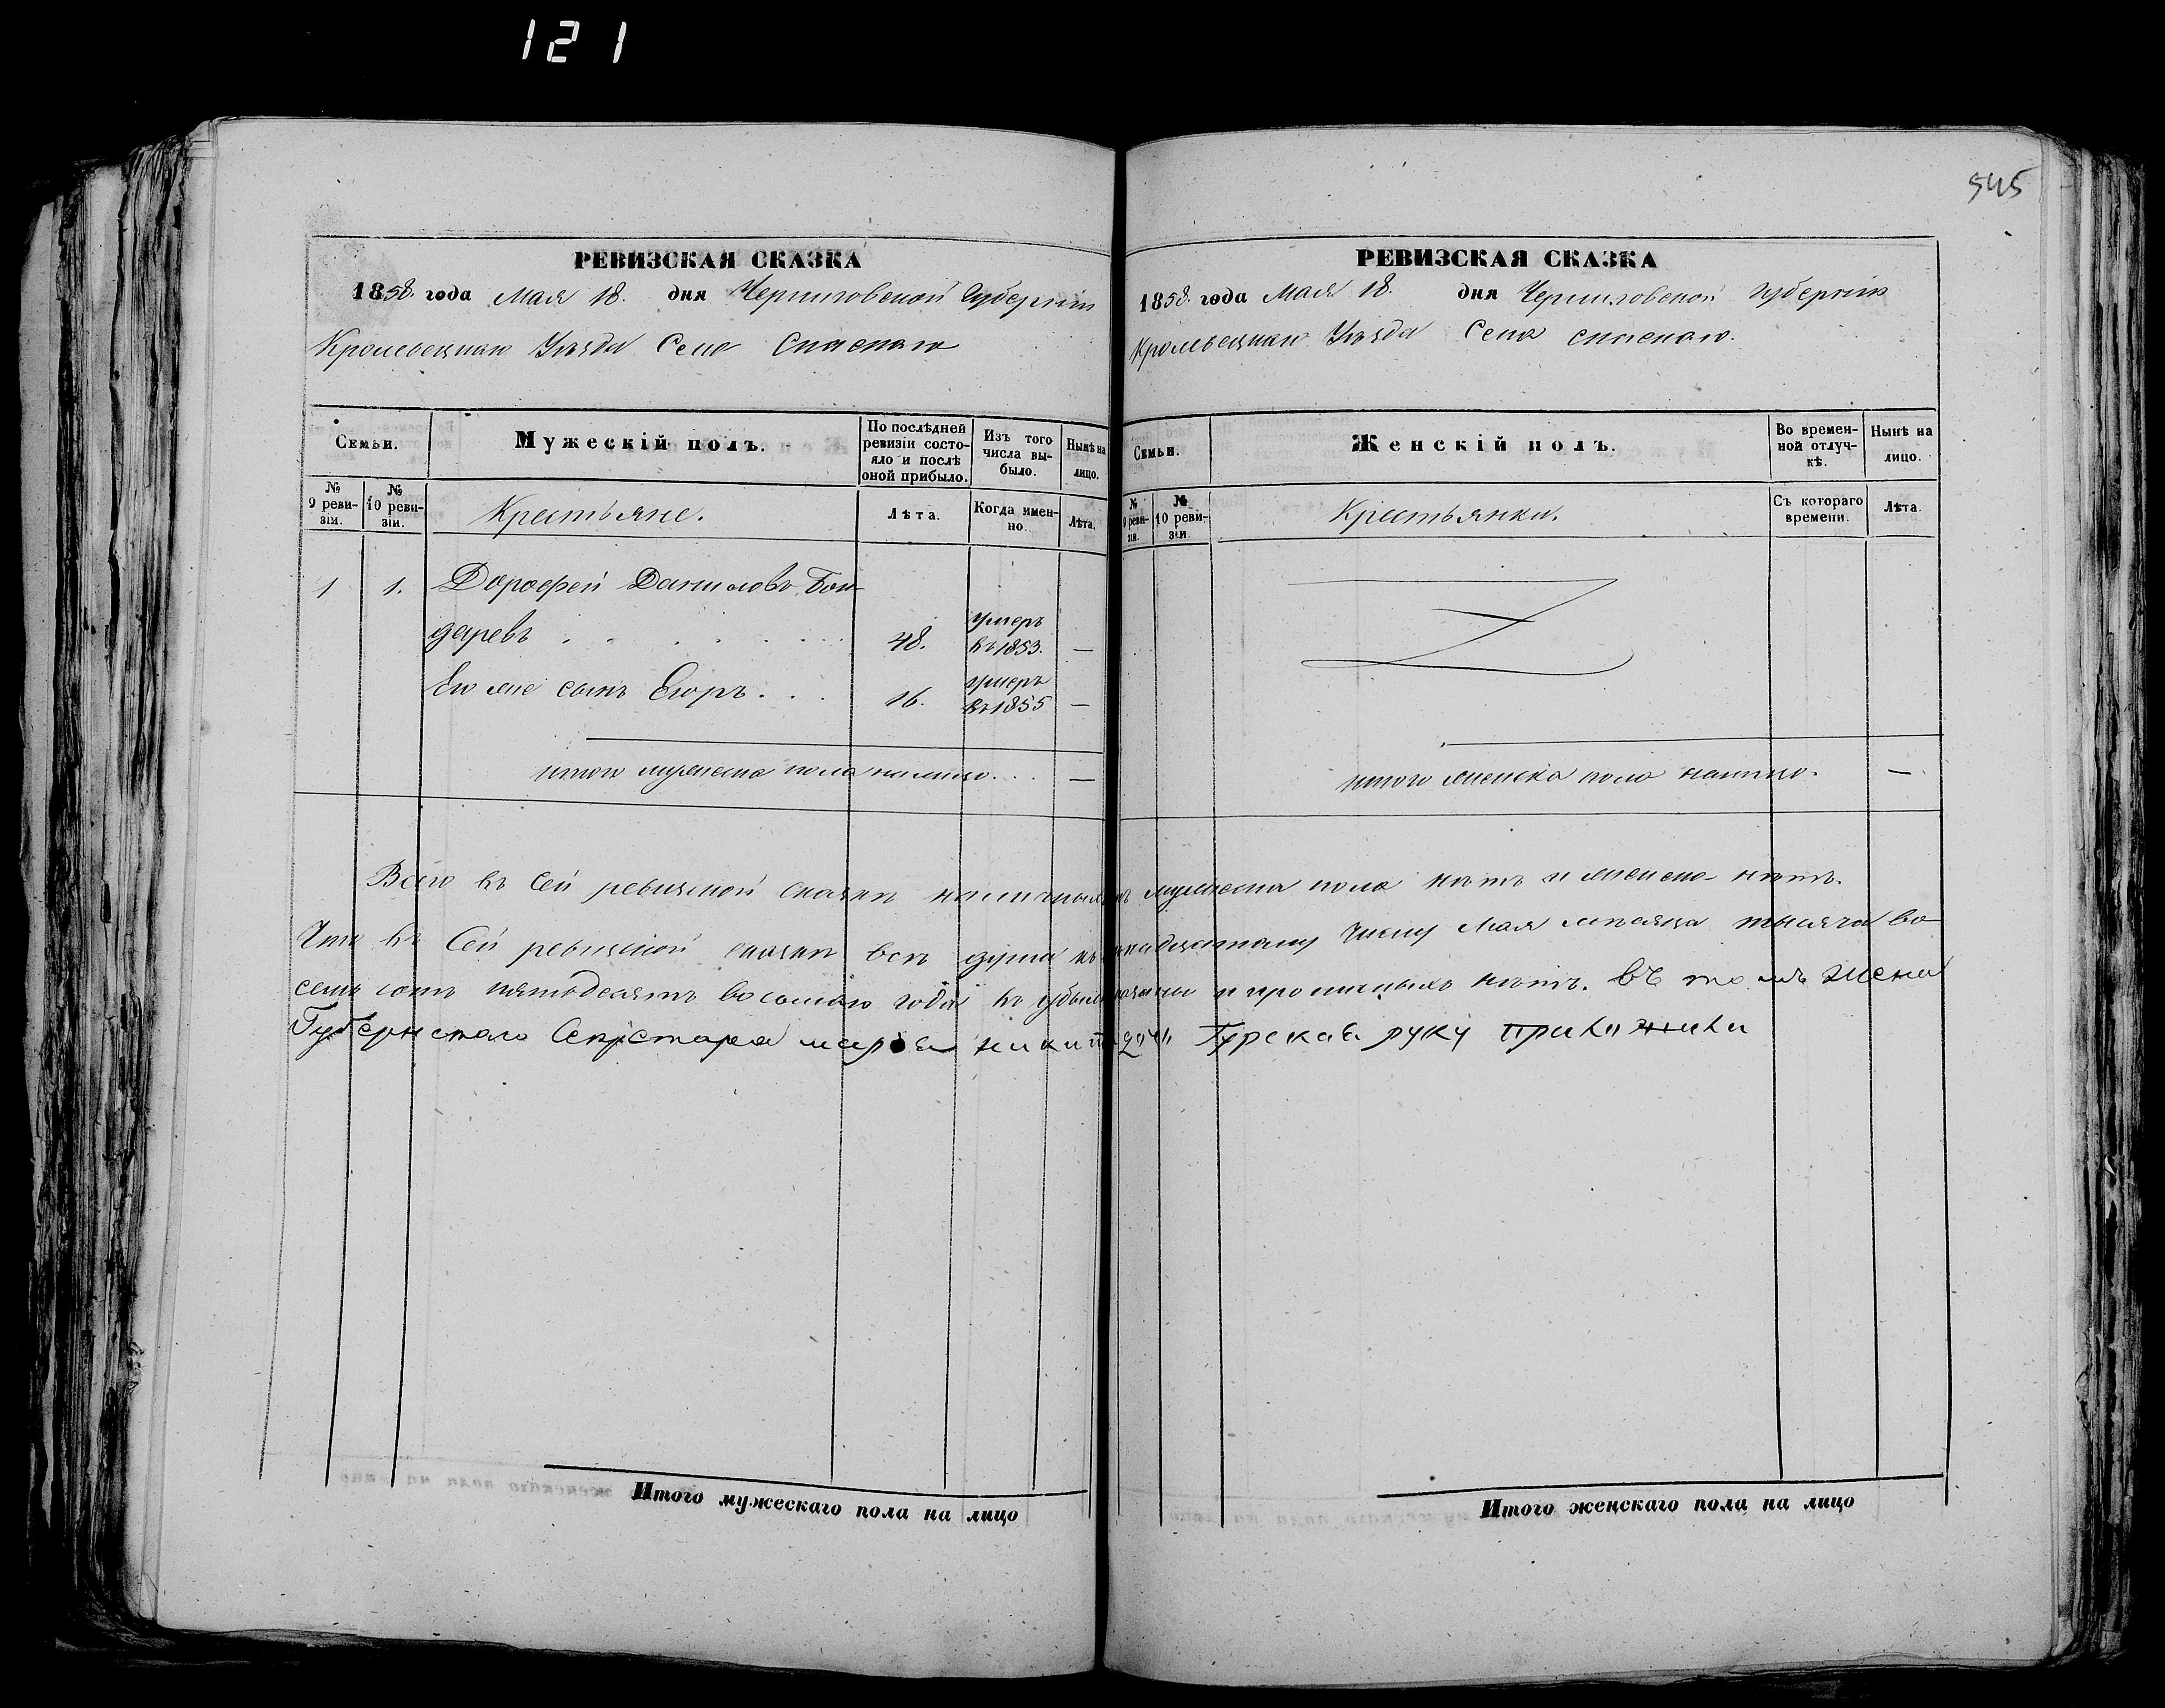 121
545
РЕВИЗСКАЯ СКАЗКА
1858. года Мая 18. дня Черниговской Губернiи
Кролевецкаго Уѣзда Села Спаскаго
Семьи.
Мужескiй полъ.
По послѣдней ревизiи состояло и послѣ оной прибыло.
Изъ того числа выбыло.
Нынѣ на лицо.
№ 9 ревизiи.
№ 10 ревизiи.
Крестьяне.
Лѣта.
Когда именно.
Лѣта.
1 1. Дорофей Даниловъ Бон-
даревъ . . . . . . 48. умеръ въ 1853. —
Его же сынъ Егоръ . . . 16. умеръ въ 1855 —
итого мужеска пола налицо. . . —
РЕВИЗСКАЯ СКАЗКА
1858. года Мая 18. дня Черниговской губернiи
Кролевецкаго Уѣзда Села спаскаго.
Семьи.
Женскiй полъ.
Во временной отлучкѣ.
Нынѣ на лицо.
№ 9 ревизiи.
№ 10 ревизiи.
Крестьянки.
Съ котораго времени.
Лѣта.
итого женска пола налицо. —
Всего въ Сей ревизской сказкѣ наличныхъ мужеска пола нѣтъ и женска нѣтъ.
Что въ Сей ревизской сказкѣ всѣ души къ числу Мая мѣсяца тысяча во-
семь сотъ пятьдесятъ восьмаго года и прописныхъ нѣтъ. въ томъ жена
Губернскаго Секретаря Гурская руку приложила
Итого мужескаго пола на лицо
Итого женскаго пола на лицо